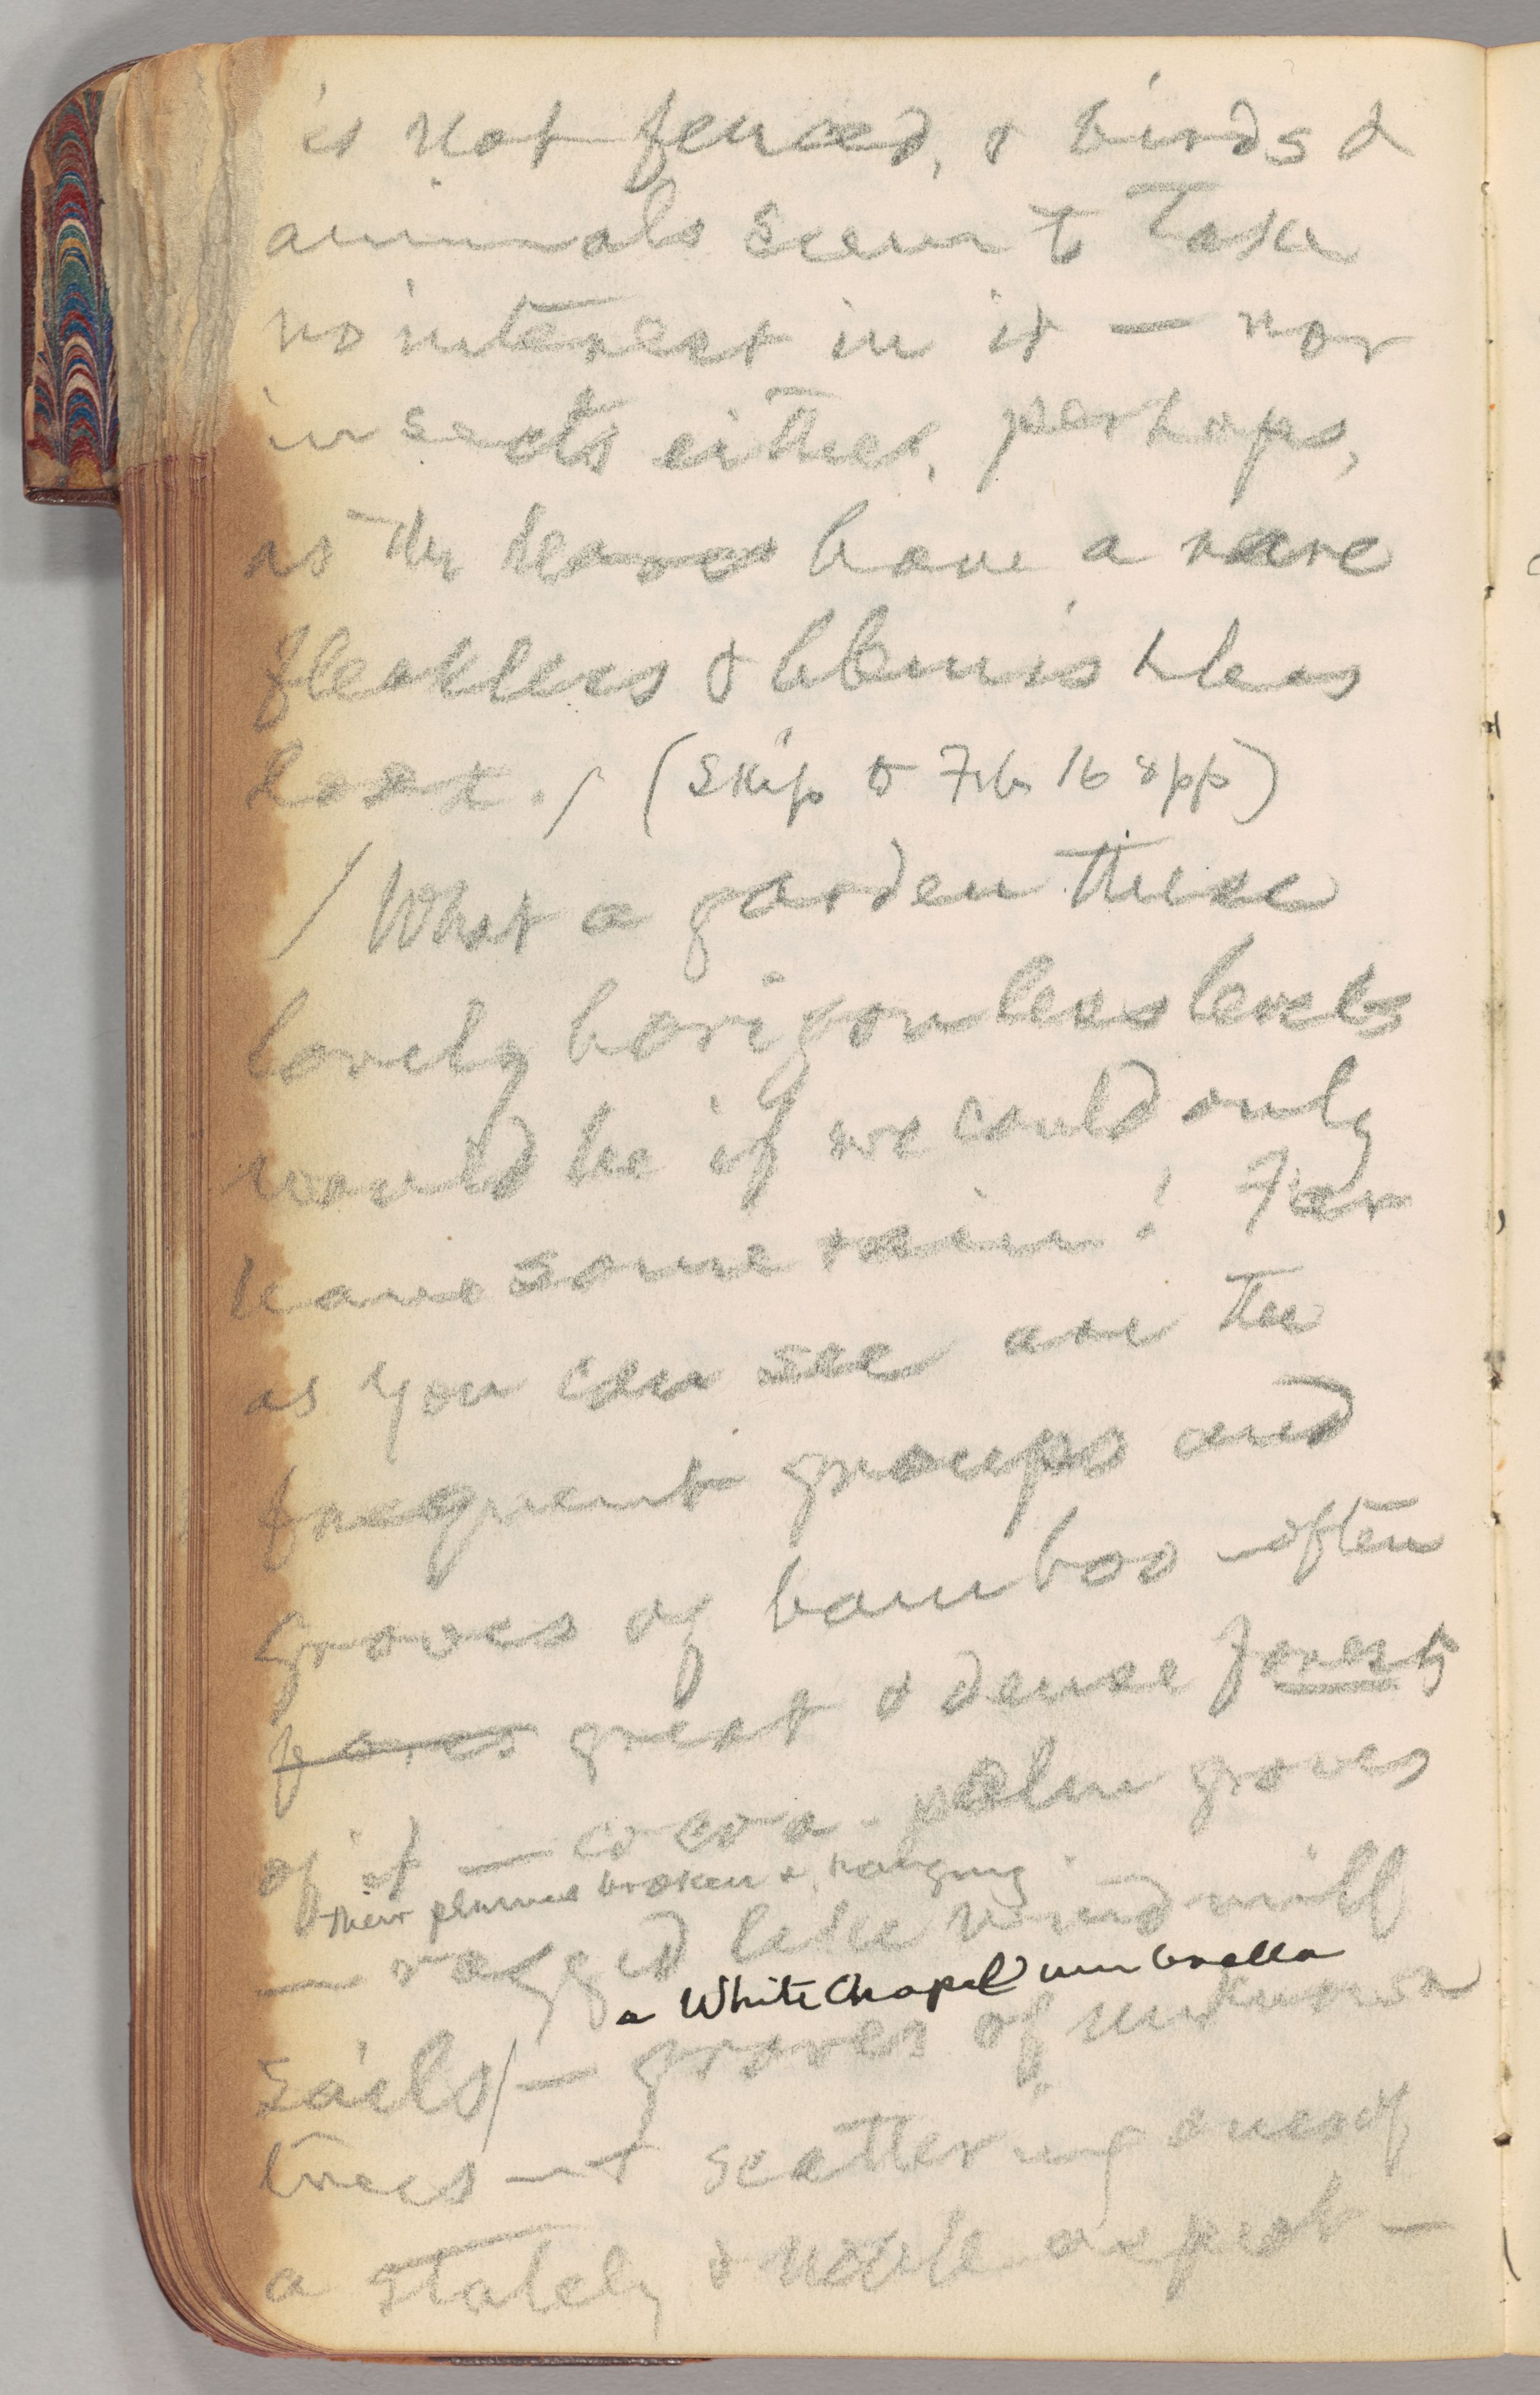 is not fenced, & birds &
animals seem to take
no interest in it — nor
insects either, perhaps,
as the leaves have a rare
fleckless & blemishless
look. / (Skip to Feb 16 8 pp)
/ What a garden these
lovely horizonless levels
would be if we could only
have some rain! Far
as you can see are the
frequent groups and
groves of bamboo — often
fores great & dense forests
of it — cocoa-palm groves
their plumes broken & hanging
— ragged like windmill
a Whitechapel umbrella
sails/ — groves of unknown
trees — & scattering ones of
a stately & noble aspect —